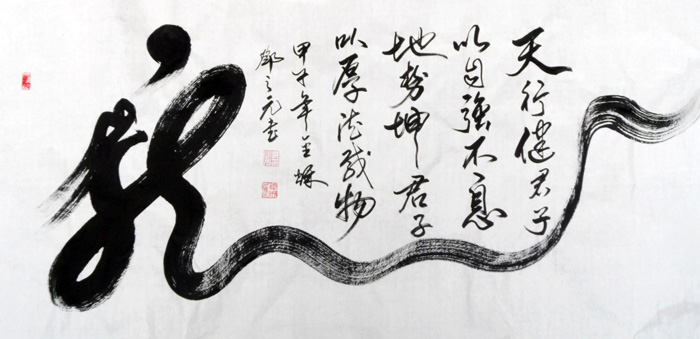 天行健君子
以自強不息
地势坤君子
以厚德载物
甲午年
之元书
龙